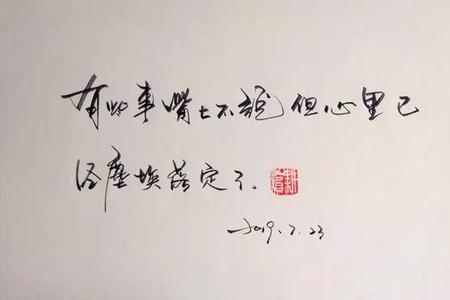 有些事嘴上不說但心里已
经塵埃落定了、
2019.7.23